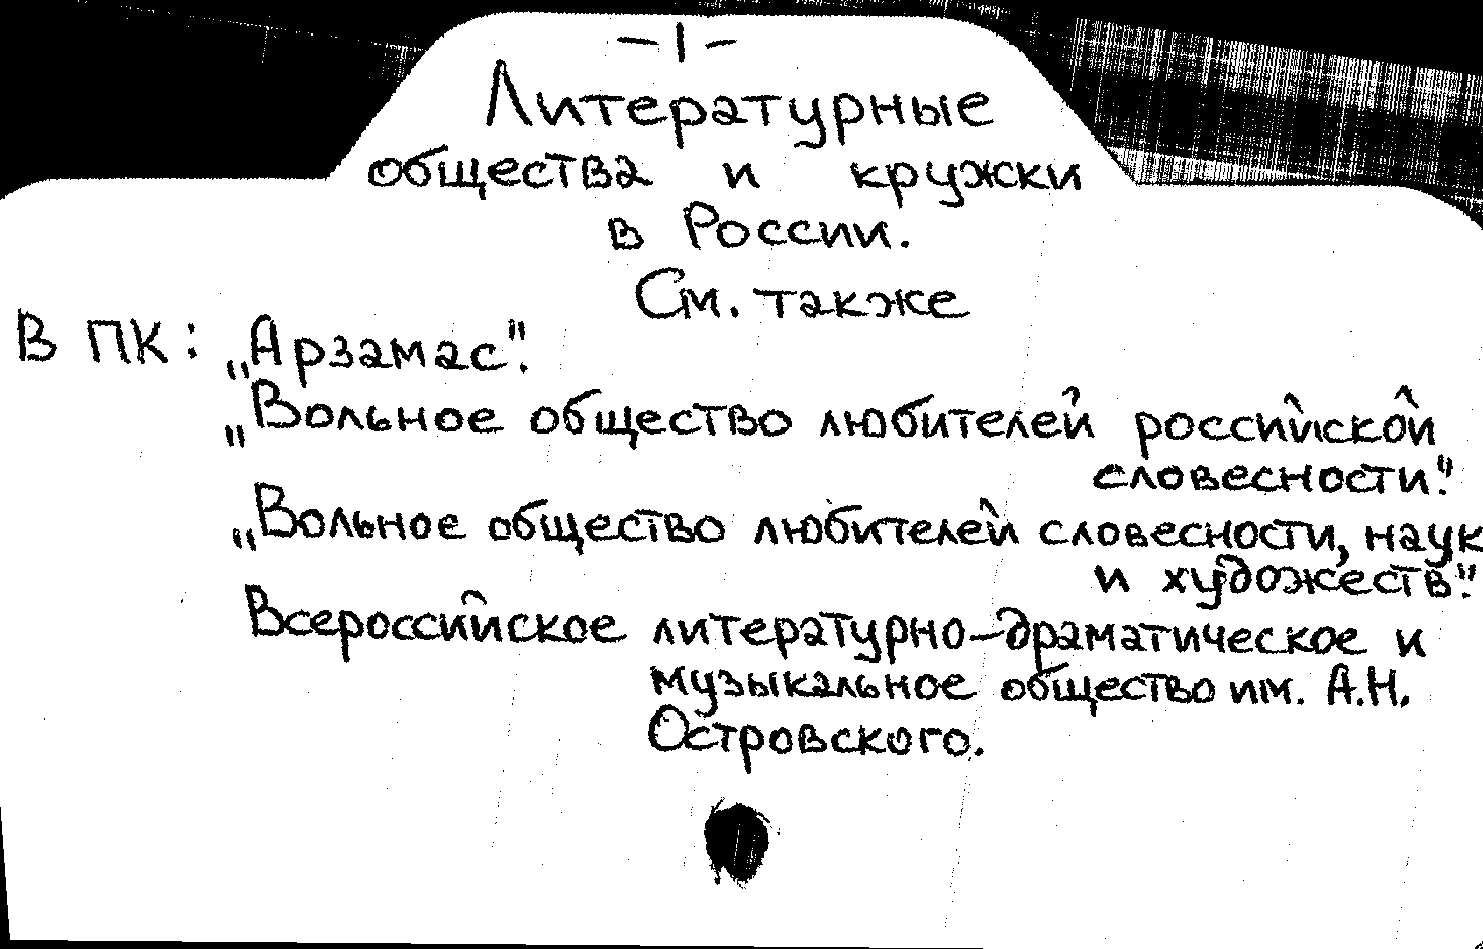 -1-
Литературные
общества и кружки
в России.
См. также
В ПК: „Арзамас".
„Вольное общество любителей российской
словесности".
„Вольное общество любителей словесности, наук
и художеств".
Всероссийское литературно-драматическое и
музыкальное общество им. А.Н.
Островского.